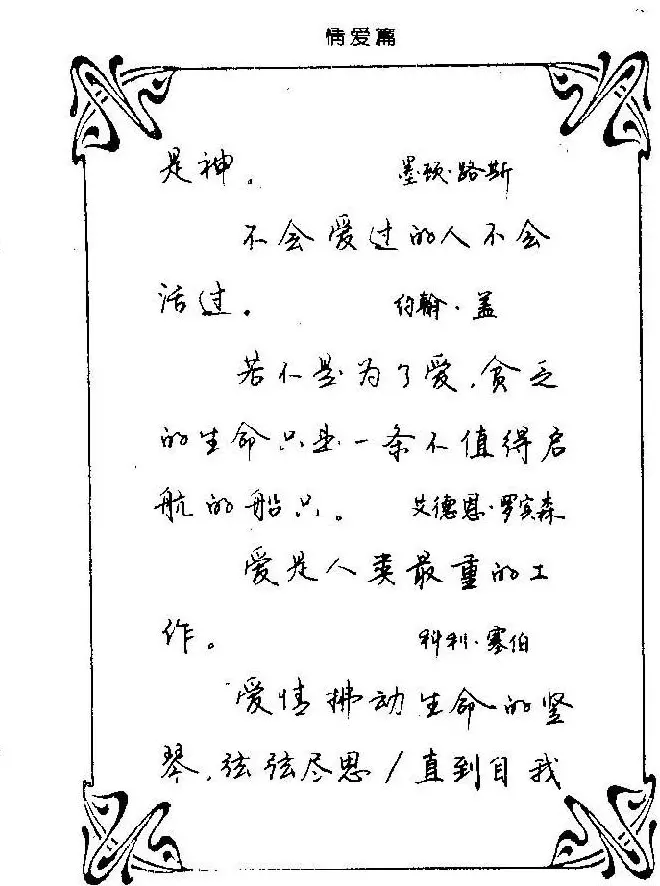 情爱篇
是神。 墨顿·路斯
不会爱过的人不会
活过。 约翰·盖
若不是为了爱,贫乏
的生命只是一条不值得启
航的船只。 艾德恩·罗宾森
爱是人类最重的工
作。 科利·塞伯
爱情拂动生命的竖
琴,弦弦尽思/直到自我